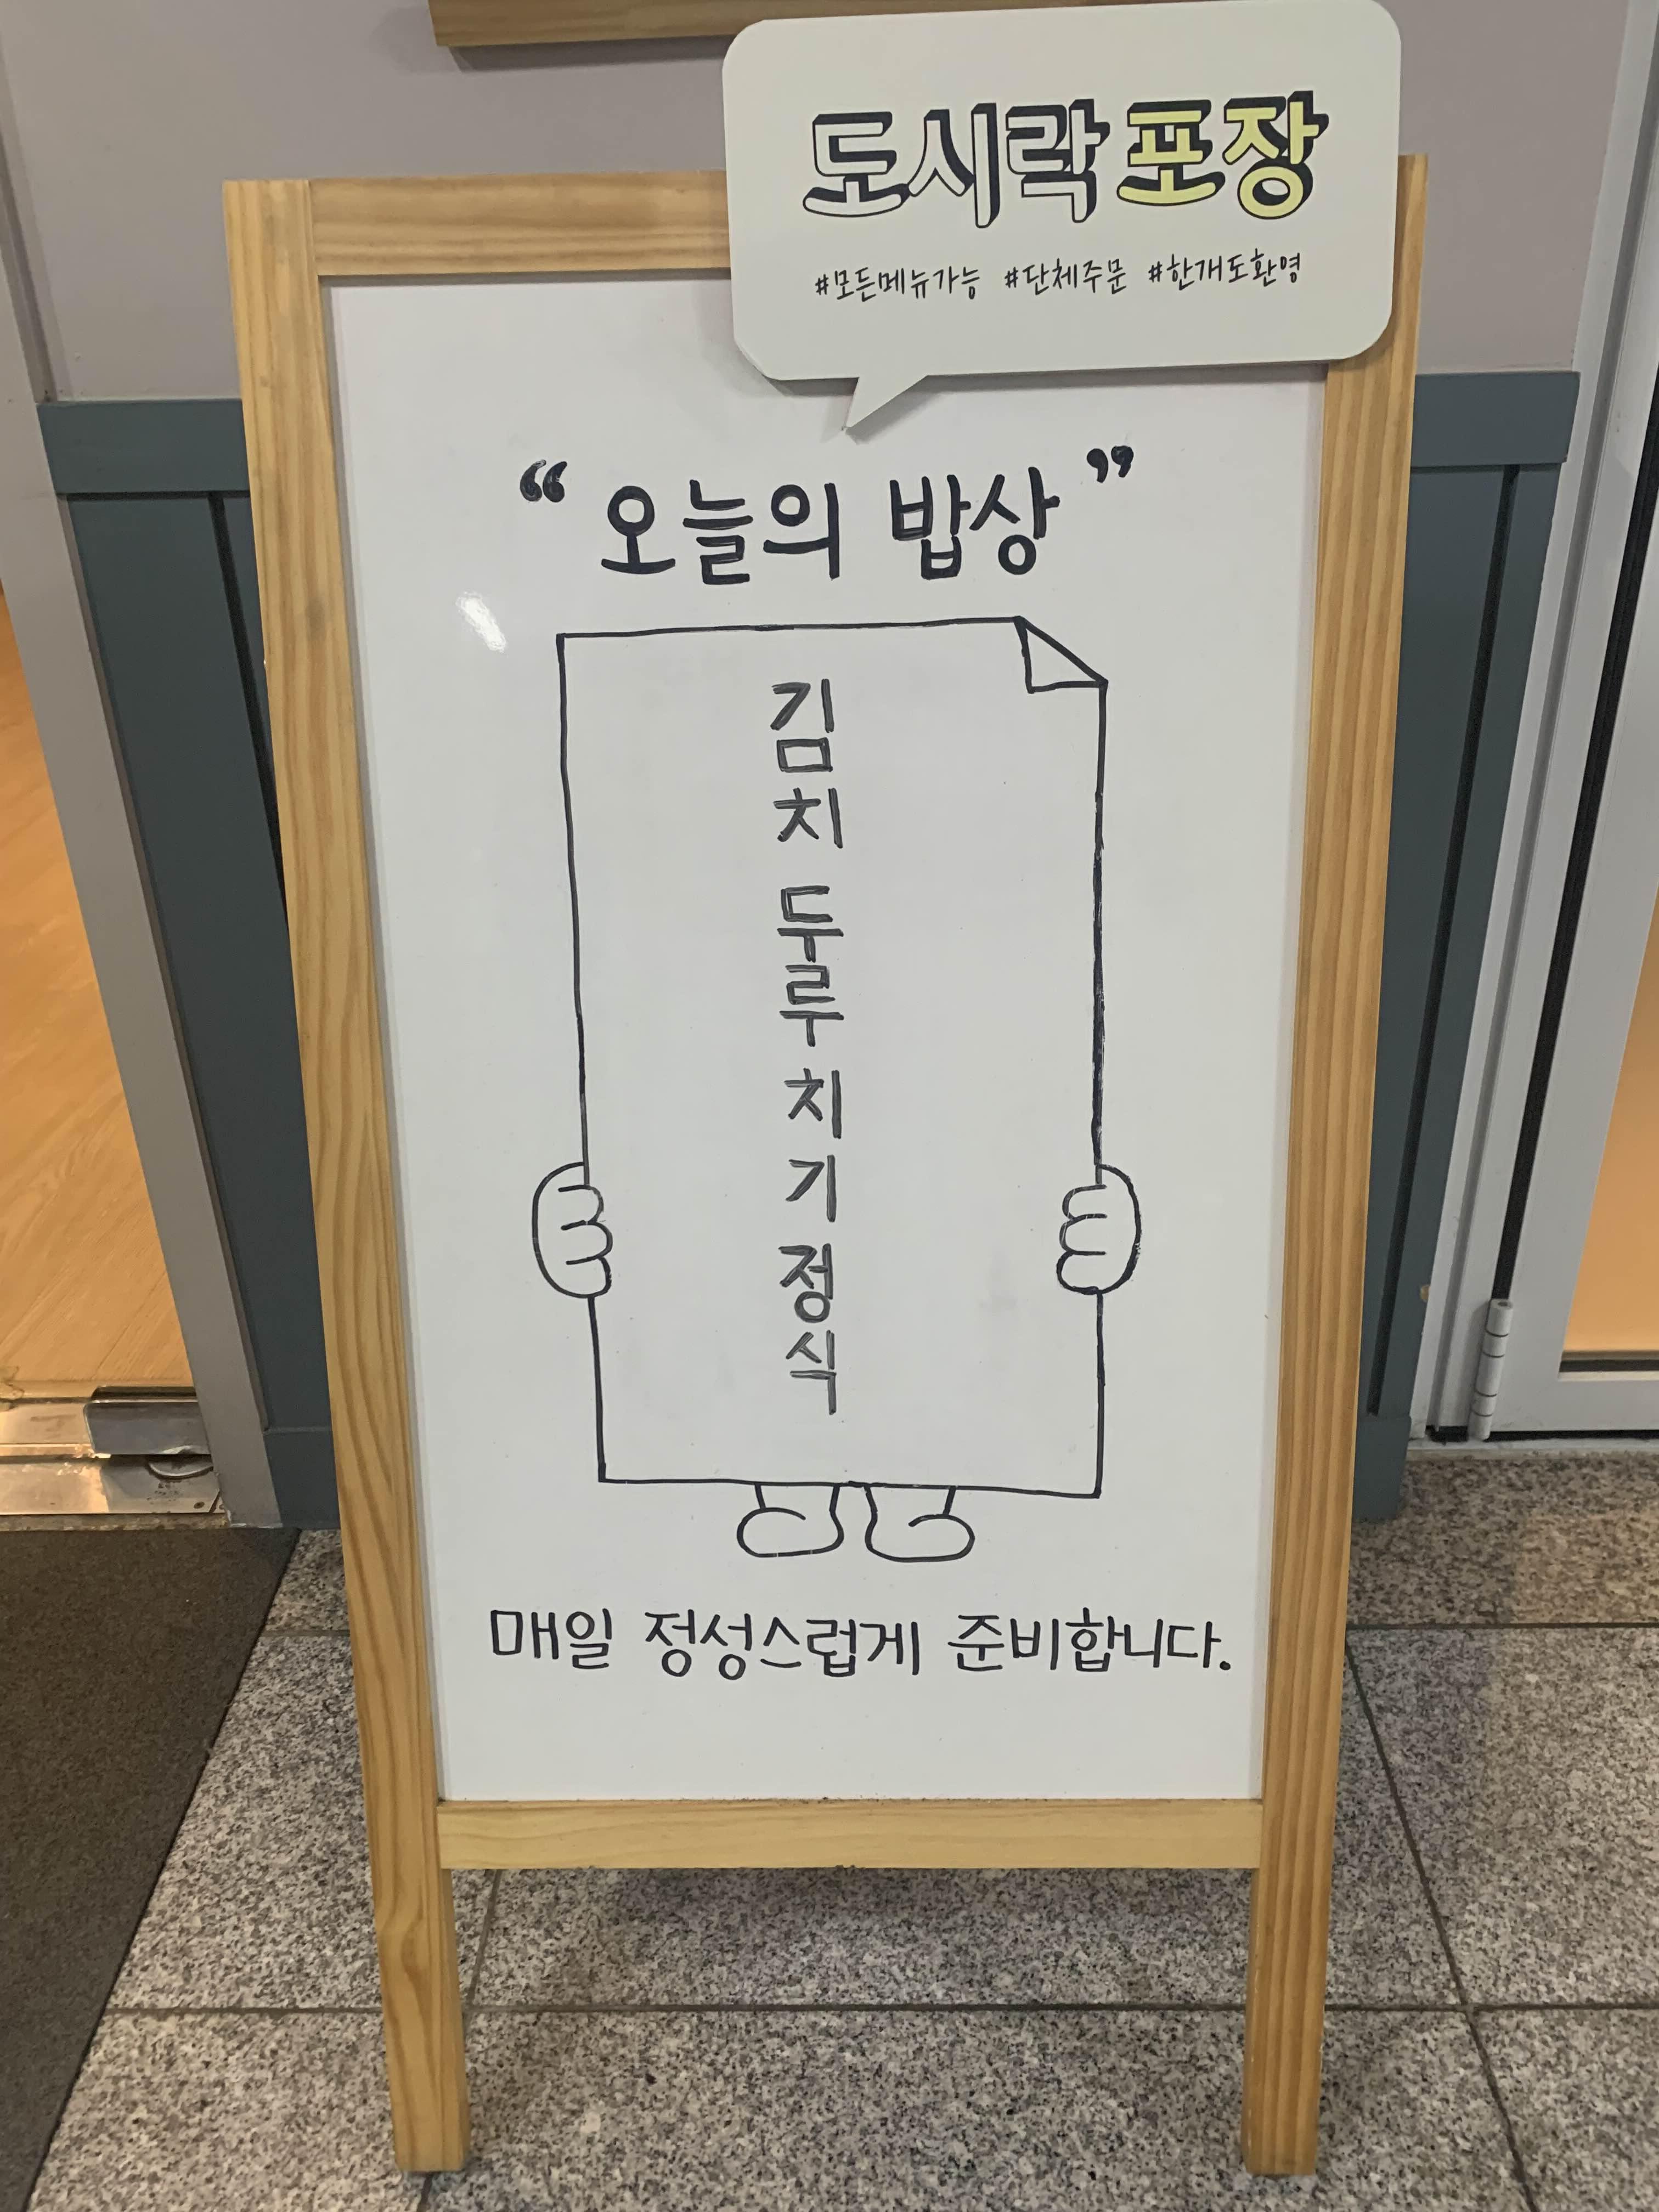 도시락 포장
#모든메뉴가능 #단체주문 #한개도환영
“ 오늘의 밥상 ”
김치 두루치기 정식
매일 정성스럽게 준비합니다.